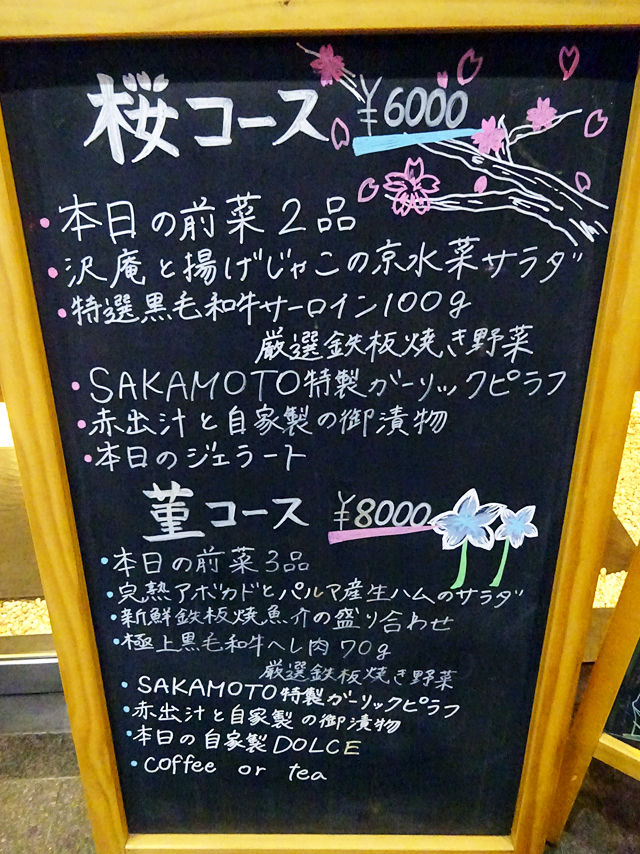 桜コース ¥6000
・本日の前菜2品
・沢庵と揚げじゃこの京水菜サラダ
・特選黒毛和牛サーロイン100g
厳選鉄板焼き野菜
・SAKAMOTO特製ガーリックピラフ
・赤出汁と自家製の御漬物
・本日のジェラート
菫コース ¥8000
・本日の前菜3品
・完熟アボカドとパルマ産生ハムのサラダ
・新鮮鉄板焼魚介の盛り合わせ
・極上黒毛和牛ヘレ肉70g
厳選鉄板焼き野菜
・SAKAMOTO特製ガーリックピラフ
・赤出汁と自家製の御漬物
・本日の自家製DOLCE
・coffee or tea